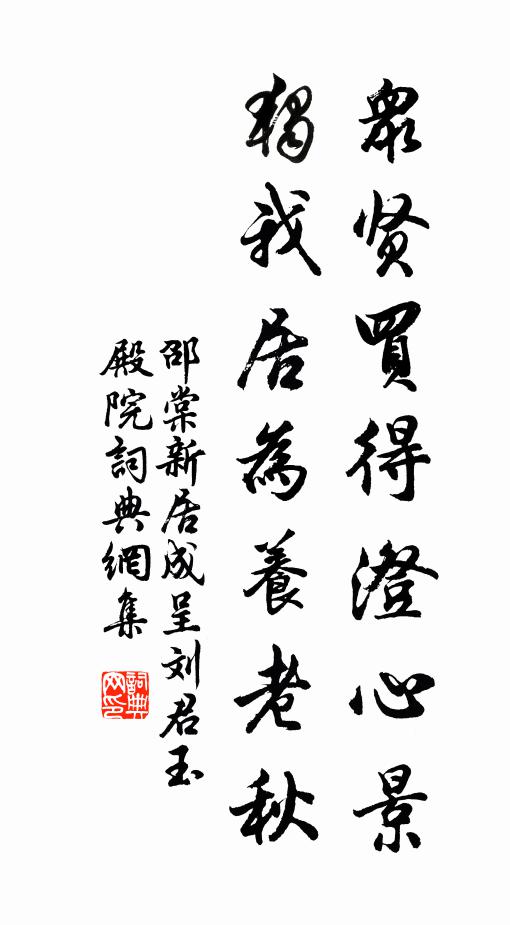 眾贤買得澄心景
獨我居為養老秋
邵棠新居成呈刘君玉
殿院詞典網集
詞典网印